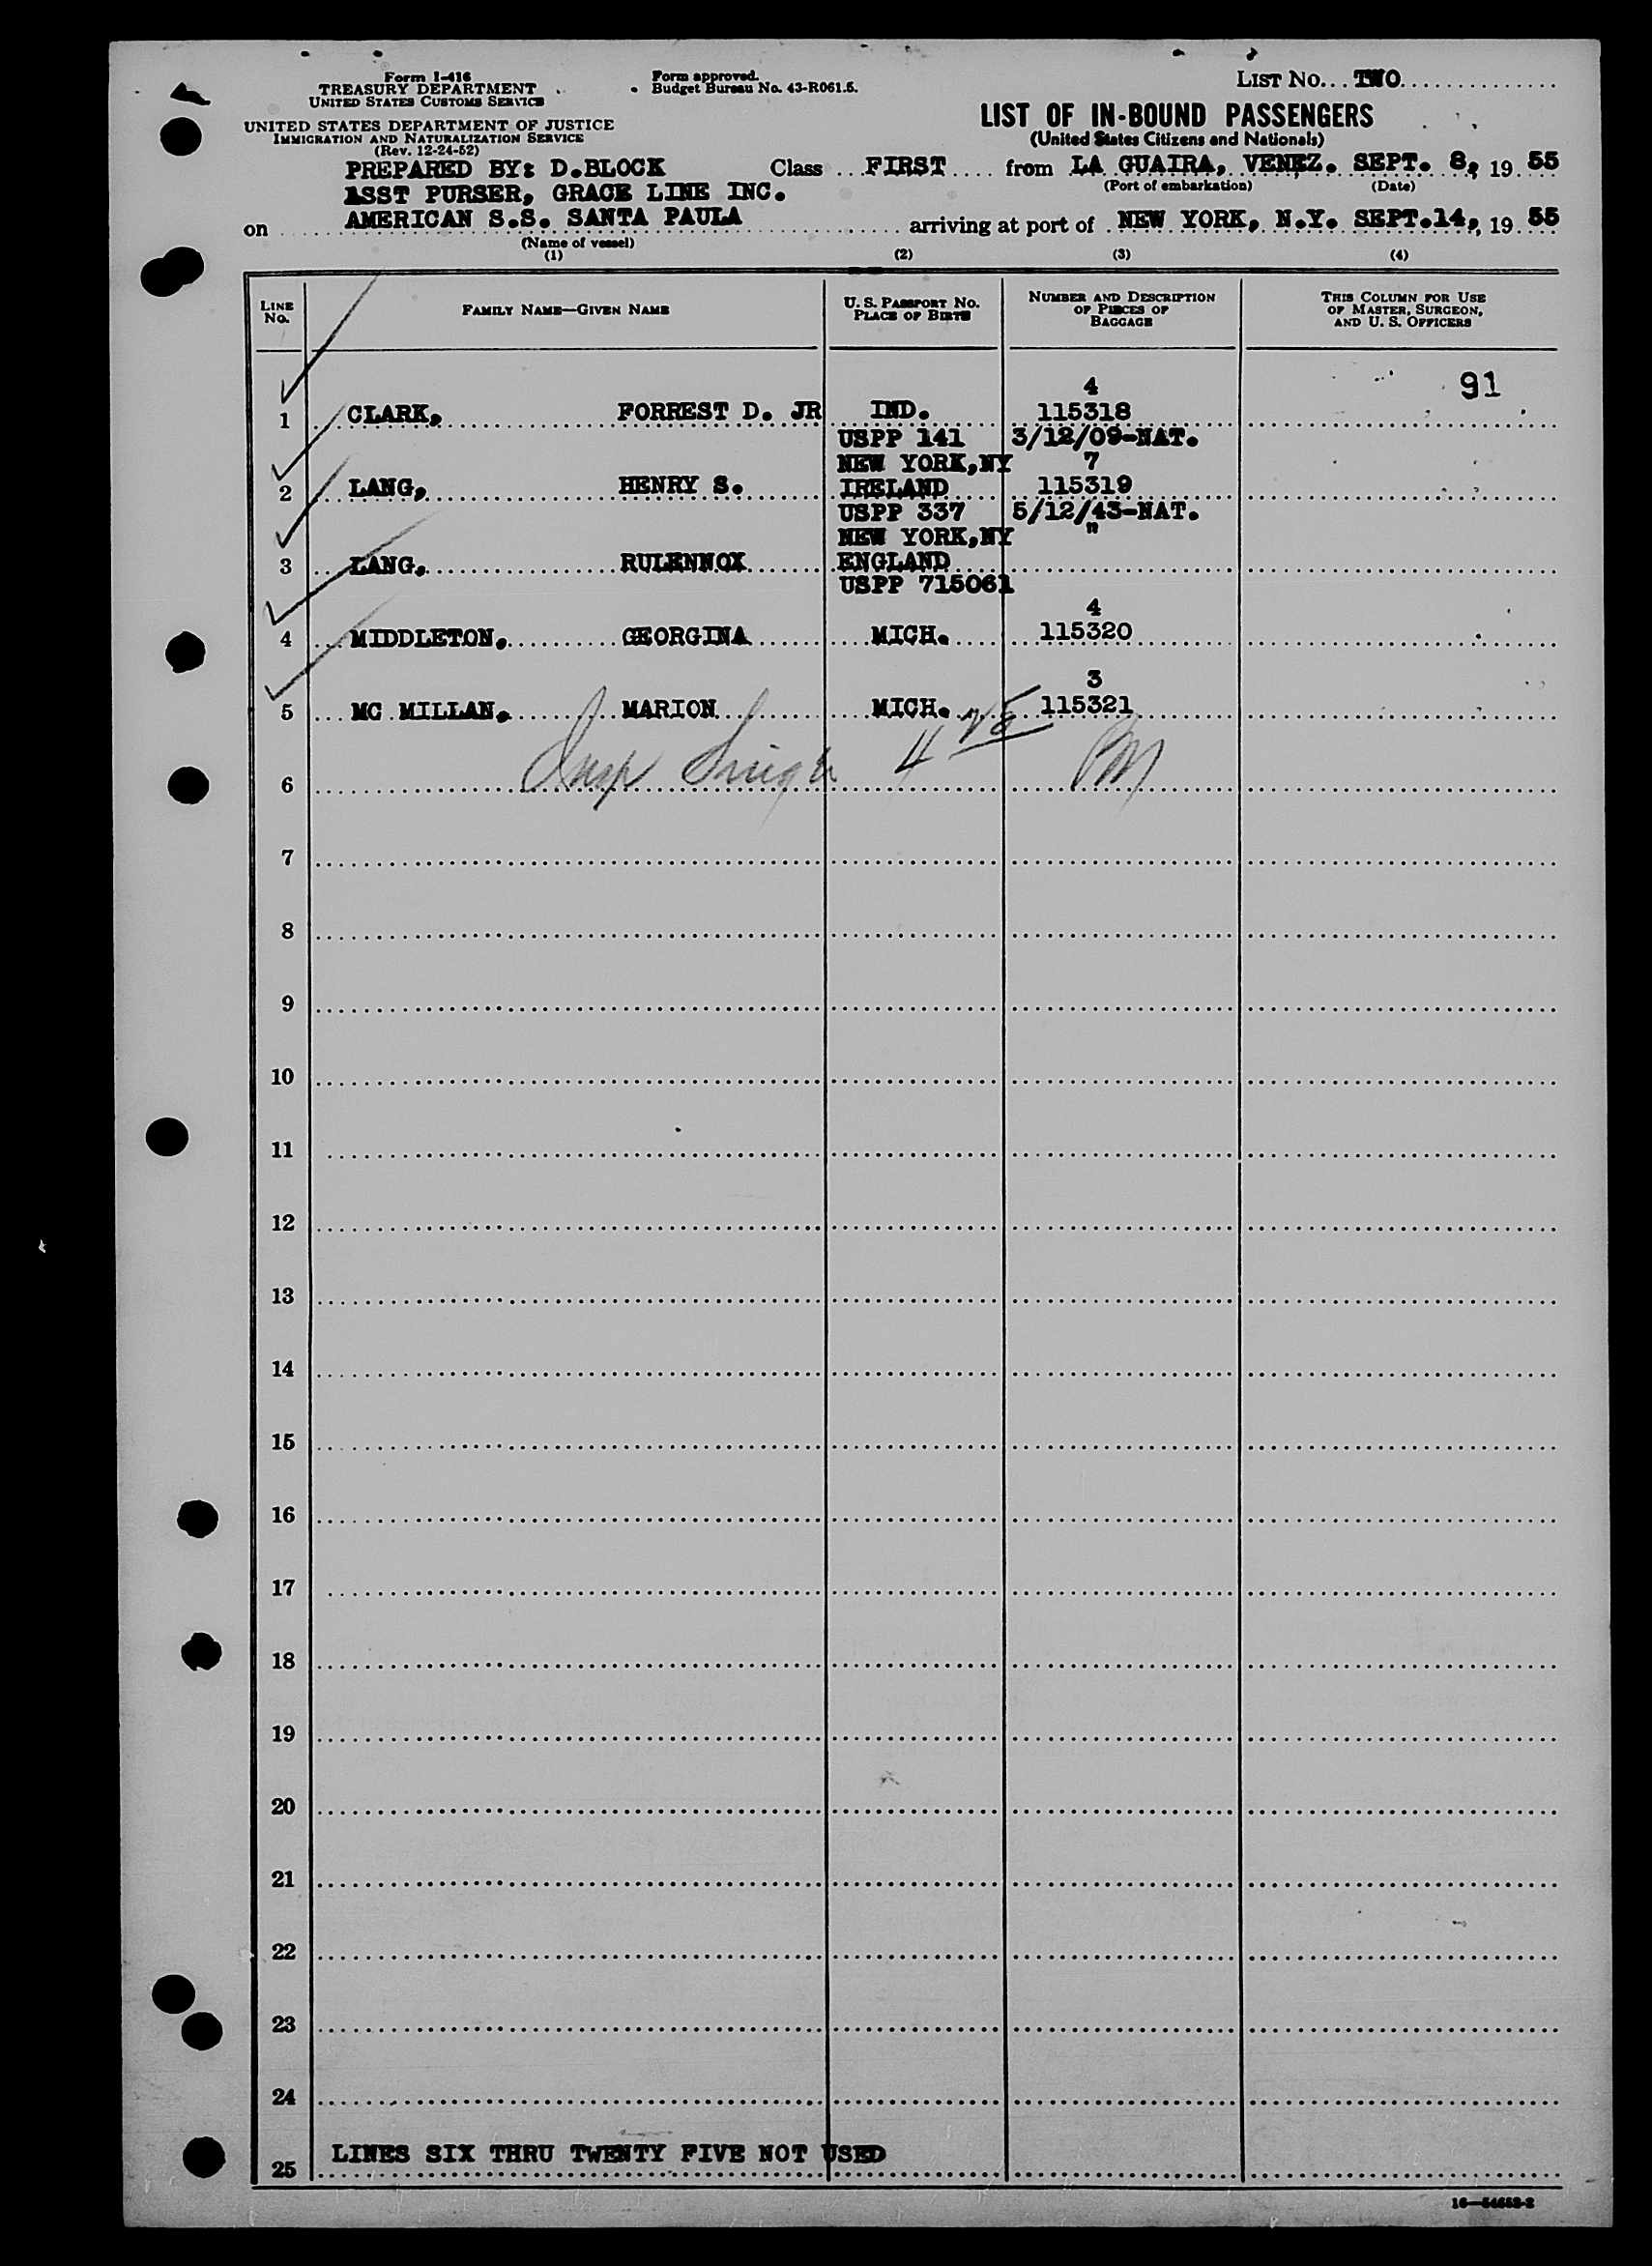 Form I-416
TREASURY DEPARTMENT
UNITED STATES CUSTOMS SERVICE
Form approved.
Budget Bureau No. 43-R061.5.
LIST NO... TWO
UNITED STATES DEPARTMENT OF JUSTICE
IMMIGRATION AND NATURALIZATION SERVICE
(Rev. 12-24-52)
LIST OF IN-BOUND PASSENGERS
(United States Citizens and Nationals)
PREPARED BY: D.BLOCK Class FIRST from LA GUAIRA, VENEZ. SEPT. 8, 19 55
(Port of embarkation) (Date)
ASST PURSER, GRACE LINE INC.
on AMERICAN S.S. SANTA PAULA arriving at port of NEW YORK, N.Y. SEPT.14, 19 55
(Name of vessel)
(1) (2) (3) (4)
LINE No. FAMILY NAME—GIVEN NAME U. S. PASSPORT NO. PLACE OF BIRTH NUMBER AND DESCRIPTION OF PIECES OF BAGGAGE THIS COLUMN FOR USE OF MASTER, SURGEON, AND U. S. OFFICERS
4 91
1 CLARK, FORREST D. JR IND. 115318
USPP 141 3/12/09-NAT.
NEW YORK,NY 7
2 LANG, HENRY S. IRELAND 115319
USPP 337 5/12/43-NAT.
NEW YORK,NY "
3 LANG, RULENNOX ENGLAND
USPP 715061
4
4 MIDDLETON, GEORGINA MICH. 115320
3
5 MC MILLAN, MARION MICH. 115321
Insp
6
7
8
9
10
11
12
13
14
15
16
17
18
19
20
21
22
23
24
LINES SIX THRU TWENTY FIVE NOT USED
25